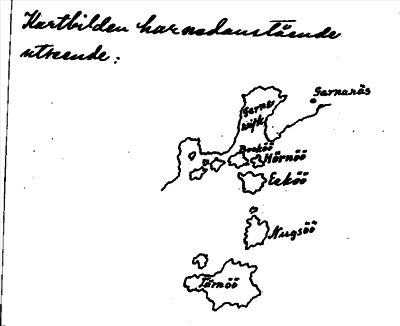 Kartbilden har nedanstående
utseende:
Garnsnäs
Garns
vik
Bockö
Hörnöö
Eeköö
Nugsöö
Tärnöö